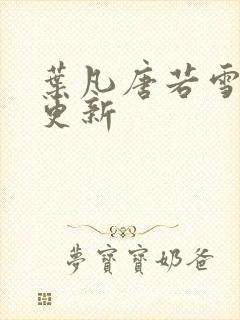 葉凡唐若雪
更新
夢寶寶奶爸